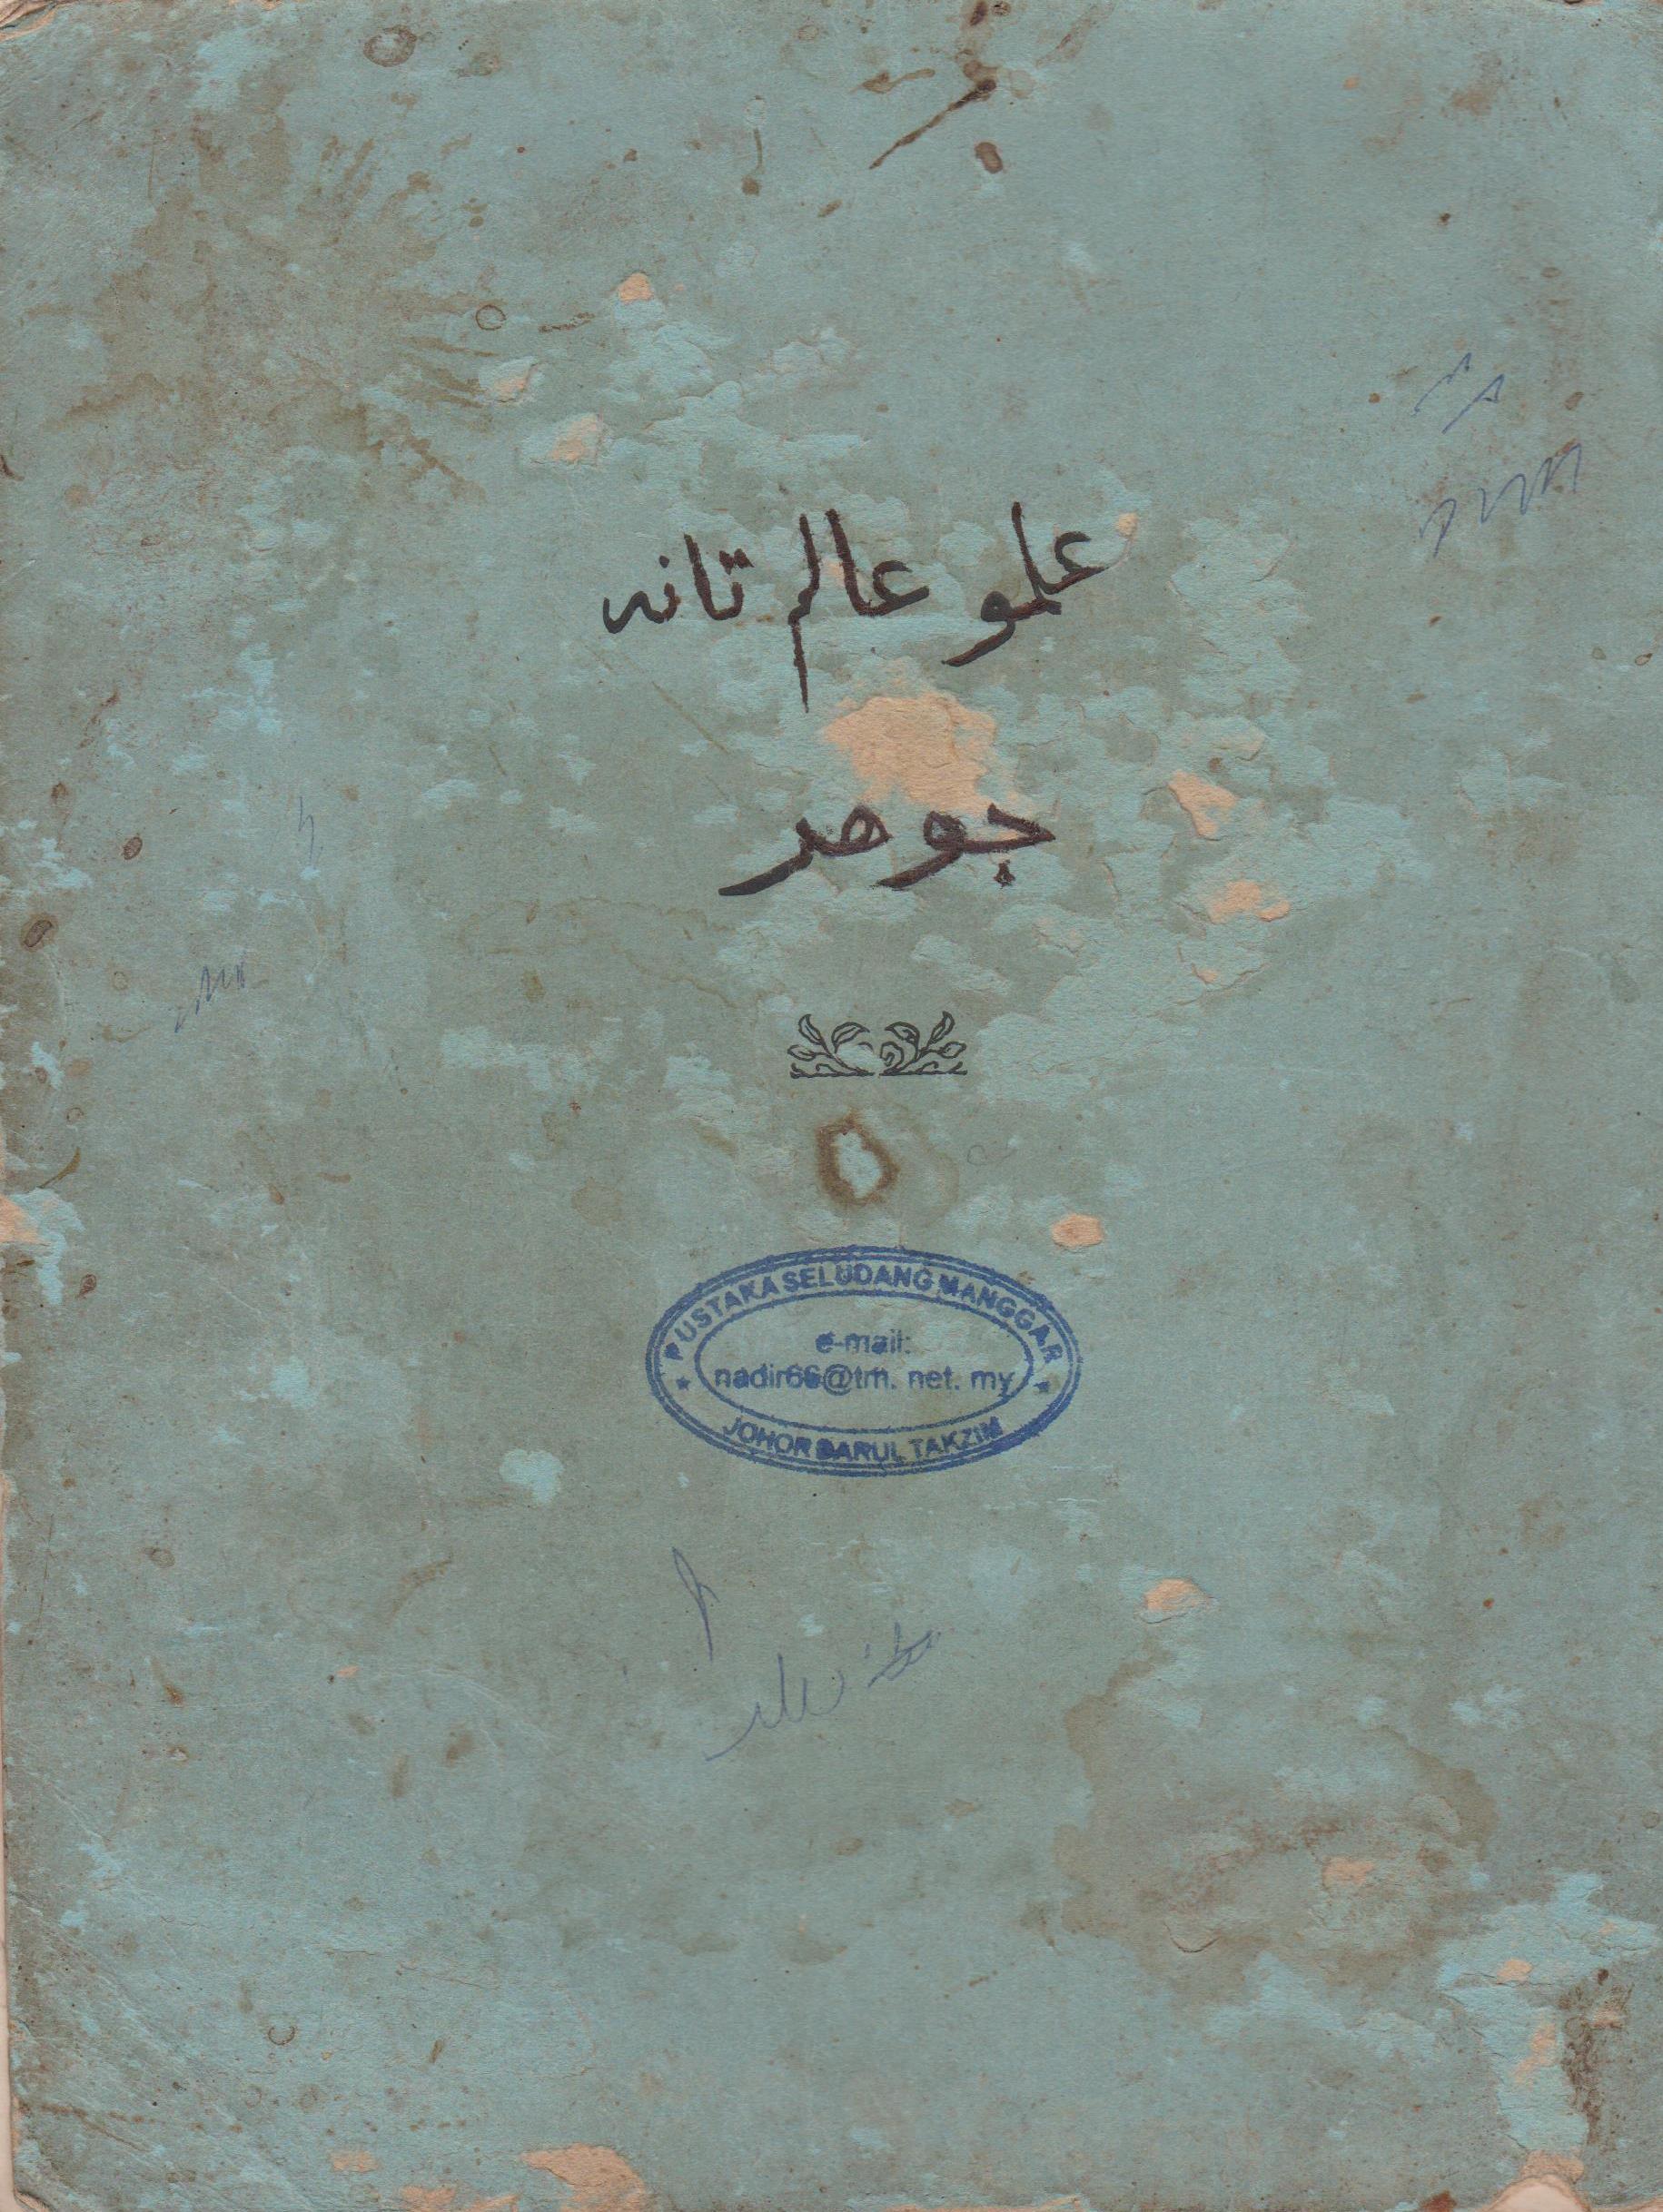 علمو عالم تانه
جوهر
PUSTAKA SELUDANG MANGGAR
e-mail:
nadir66@tm. net. my
JOHOR DARUL TAKZIM